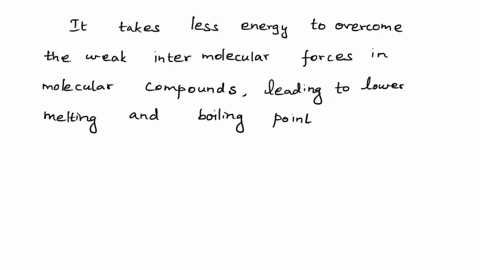 It takes less energy to overcome
the weak inter molecular forces in
molecular compounds, leading to lower
melting and boiling point